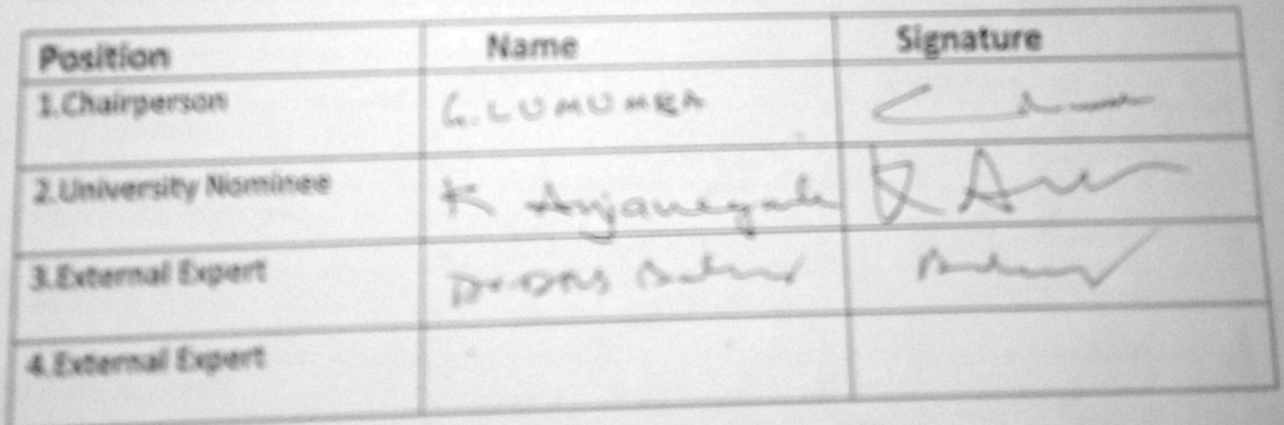 Position Name Signature
1.Chairperson G. LUMUMBA
2.University Nominee K Anjaneyulu
3.External Expert Dr DNS
4.External Expert